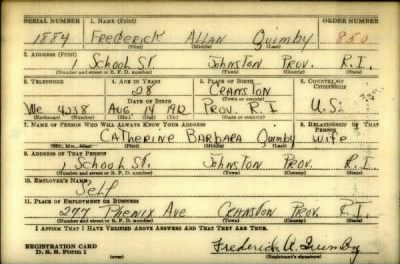 SERIAL NUMBER 1. NAME (Print) ORDER NUMBER
1884 Frederick Allan Quimby 850
(First) (Middle) (Last)
2. ADDRESS (Print)
1 School St. Johnston Prov. R.I.
(Number and street or R. F. D. number) (Town) (County) (State)
3. TELEPHONE 4. AGE IN YEARS 5. PLACE OF BIRTH 6. COUNTRY OF CITIZENSHIP
28 Cranston
DATE OF BIRTH (Town or county)
We 4038 Aug 14 1912 Prov. R.I. U.S.
(Exchange) (Number) (Mo.) (Day) (Yr.) (State or country)
7. NAME OF PERSON WHO WILL ALWAYS KNOW YOUR ADDRESS 8. RELATIONSHIP OF THAT PERSON
Catherine Barbara Quimby Wife
(Mr., Mrs., Miss) (First) (Middle) (Last)
9. ADDRESS OF THAT PERSON
1 School St. Johnston Prov. R.I.
(Number and street or R. F. D. number) (Town) (County) (State)
10. EMPLOYER'S NAME
Self
11. PLACE OF EMPLOYMENT OR BUSINESS
277 Phenix Ave Cranston Prov. R.I.
(Number and street or R. F. D. number) (Town) (County) (State)
I AFFIRM THAT I HAVE VERIFIED ABOVE ANSWERS AND THAT THEY ARE TRUE.
REGISTRATION CARD
D. S. S. Form 1
Frederick A. Quimby
(Registrant's signature)